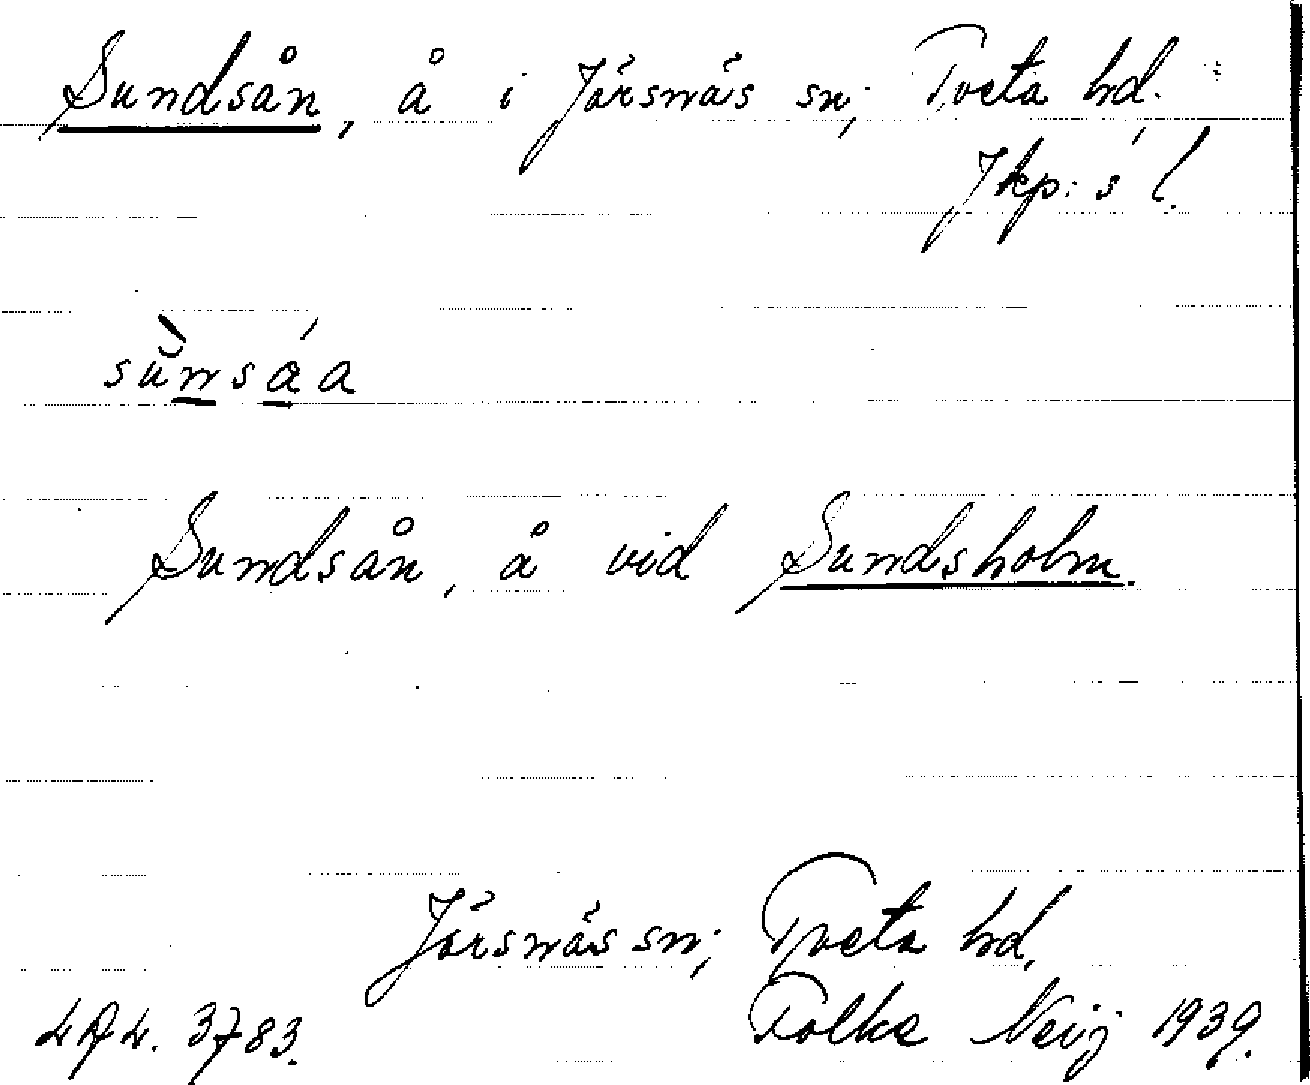 Sundsån, å i Järsnäs sn; Tveta hd.
Jkp:s l.
Sundsån, å vid Sundsholm.
Järsnäs sn; Tveta hd.
3783. Folke Neij 1939.